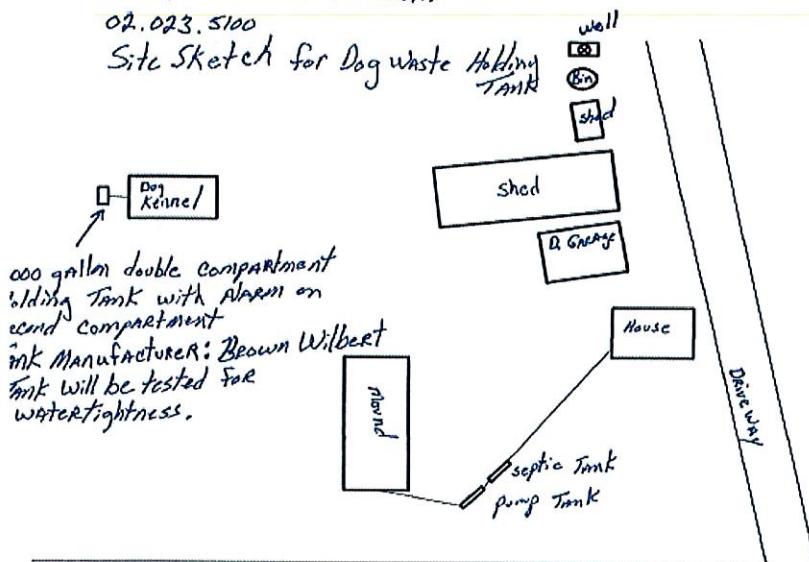 02.023.5100
Site Sketch for Dog Waste Holding
TANK
well
Bin
shed
shed
D. GARAGE
Dog
Kennel
000 gallon double compartment
olding Tank with Alarm on
econd compartment
ank Manufacturer: Brown Wilbert
Tank will be tested for
watertightness.
House
Mound
Driveway
septic Tank
pump Tank